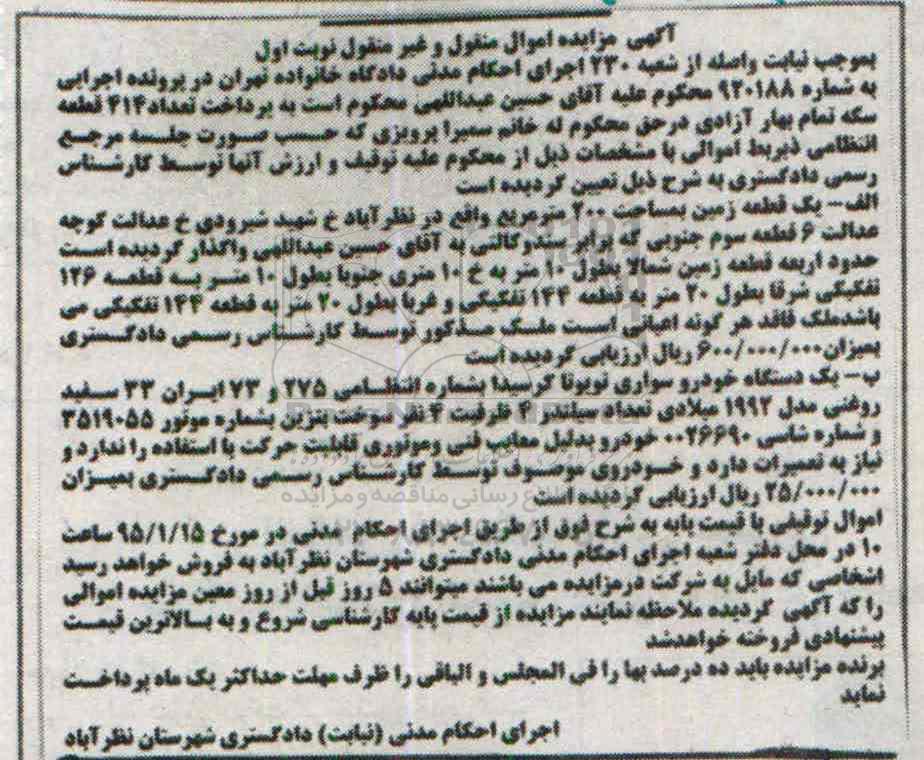 آگهی مزایده اموال منقول و غیر منقول نوبت اول
بموجب نیابت واصله از شعبه ۲۳۰ اجرای احکام مدنی دادگاه خانواده تهران در پرونده اجرایی
به شماره ۹۳۰۱۸۸ محکوم علیه آقای حسین عبداللهی محکوم است به پرداخت تعداد ۴۱۴ قطعه
سکه تمام بهار آزادی درحق محکوم له خانم سمیرا پرویزی که حسب صورت جلسه مرجع
انتظامی ذیربط اموالی با مشخصات ذیل از محکوم علیه توقیف و ارزش آنها توسط کارشناس
رسمی دادگستری به شرح ذیل تعیین گردیده است
الف- یک قطعه زمین بمساحت ۲۰۰ مترمربع واقع در نظرآباد خ شهید شیرودی خ عدالت کوچه
عدالت ۶ قطعه سوم جنوبی که برابر سندوکالتی به آقای حسین عبداللهی واگذار گردیده است
حدود اربعه قطعه زمین شمالا بطول ۱۰ متر به خ ۱۰ متری جنوبا بطول ۱۰ متر به قطعه ۱۲۶
تفکیکی شرقا بطول ۲۰ متر به قطعه ۱۲۴ تفکیکی و غربا بطول ۲۰ متر به قطعه ۱۴۴ تفکیکی می
باشدملک فاقد هر گونه اعیانی است ملک مذکور توسط کارشناس رسمی دادگستری
بمیزان ۶۰۰/۰۰۰/۰۰۰ ریال ارزیابی گردیده است
ب- یک دستگاه خودرو سواری تویوتا کرسیدا بشماره انتظامی ۲۷۵ و ۷۳ ایران ۳۳ سفید
روغنی مدل ۱۹۹۲ میلادی تعداد سیلندر ۴ ظرفیت ۴ نفر سوخت بنزین بشماره موتور ۳۵۱۹۰۵۵
و شماره شاسی ۰۰۲۶۶۹۰ خودرو بدلیل معایب فنی وموتوری قابلیت حرکت یا استفاده را ندارد و
نیاز به تعمیرات دارد و خودروی موصوف توسط کارشناس رسمی دادگستری بمیزان
۲۵/۰۰۰/۰۰۰ ریال ارزیابی گردیده است
اموال توقیفی با قیمت پایه به شرح فوق از طریق اجرای احکام مدنی در مورخ ۹۵/۱/۱۵ ساعت
۱۰ در محل دفتر شعبه اجرای احکام مدنی دادگستری شهرستان نظرآباد به فروش خواهد رسید
اشخاصی که مایل به شرکت درمزایده می باشند میتوانند ۵ روز قبل از روز معین مزایده اموالی
را که آگهی گردیده ملاحظه نمایند مزایده از قیمت پایه کارشناسی شروع و به بالاترین قیمت
پیشنهادی فروخته خواهدشد
برنده مزایده باید ده درصد بها را فی المجلس و الباقی را ظرف مهلت حداکثر یک ماه پرداخت
نماید
اجرای احکام مدنی (نیابت) دادگستری شهرستان نظرآباد